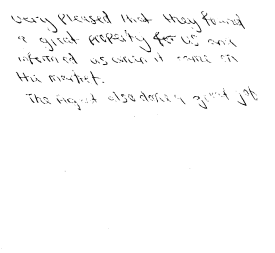 very pleased that they found
a great property for us and
informed us when it came on
the market.
The Agent also doing a good job